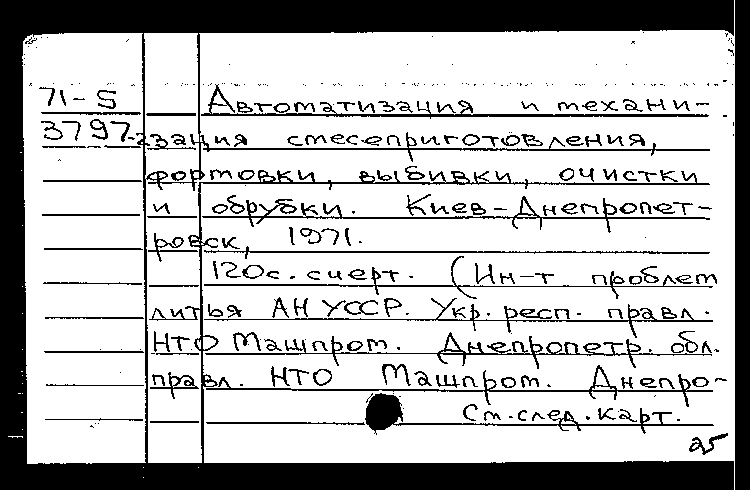 71-5 Автоматизация и механи-
3797 зация смесеприготовления,
формовки, выбивки, очистки
и обрубки. Киев-Днепропет-
ровск, 1971.
120с. с черт. (Ин-т проблем
литья АН УССР. Укр. респ. правл.
НТО Машпром. Днепропетр. обл.
правл. НТО Машпром. Днепро-
См. след. карт.
25